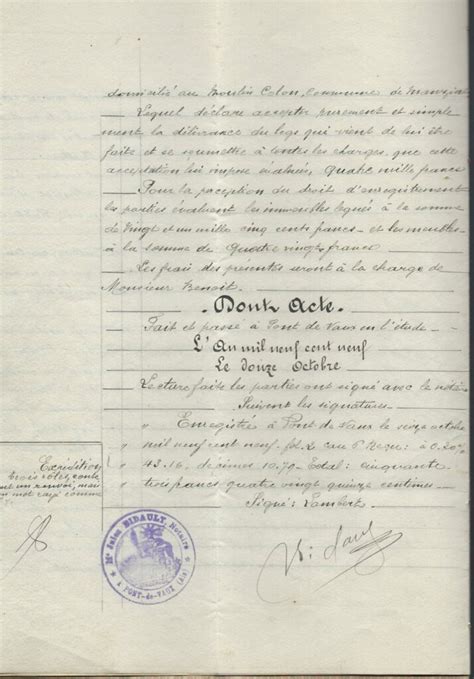 domicilié au Moulin Colon, Commune de Manziat
Lequel déclare accepter purement et simple
ment la délivrance du legs qui vient de lui être
faite et se soumettre à toutes les charges, que cette
acceptation lui impose évaluées, quatre mille francs
Pour la perception du droit d'enregistrement
les parties évaluent les immeubles légués à la somme
de Vingt et un mille cinq cents francs et les meubles
à la somme de quatre vingts francs
Les frais des présentes seront à la charge de
Monsieur Benoit.
Dont Acte.
Fait et passé à Pont de Vaux en l'étude
L'An mil neuf cent neuf
Le douze Octobre
Lecture faite les parties ont signé avec le notaire
Suivent les signatures
Enregistrée à Pont de Vaux le octobre
mil neuf cent neuf. Reçu: à
43.16. décimes 10,79 Total: cinquante
trois francs quatre vingt quinze centimes
Signé: Lambert
Expédition
trois rôles, conte
nant un renvoi, mais
un mot rayé comme
Me Jules BIDAULT, Notaire
A PONT-de-VAUX (Ain)